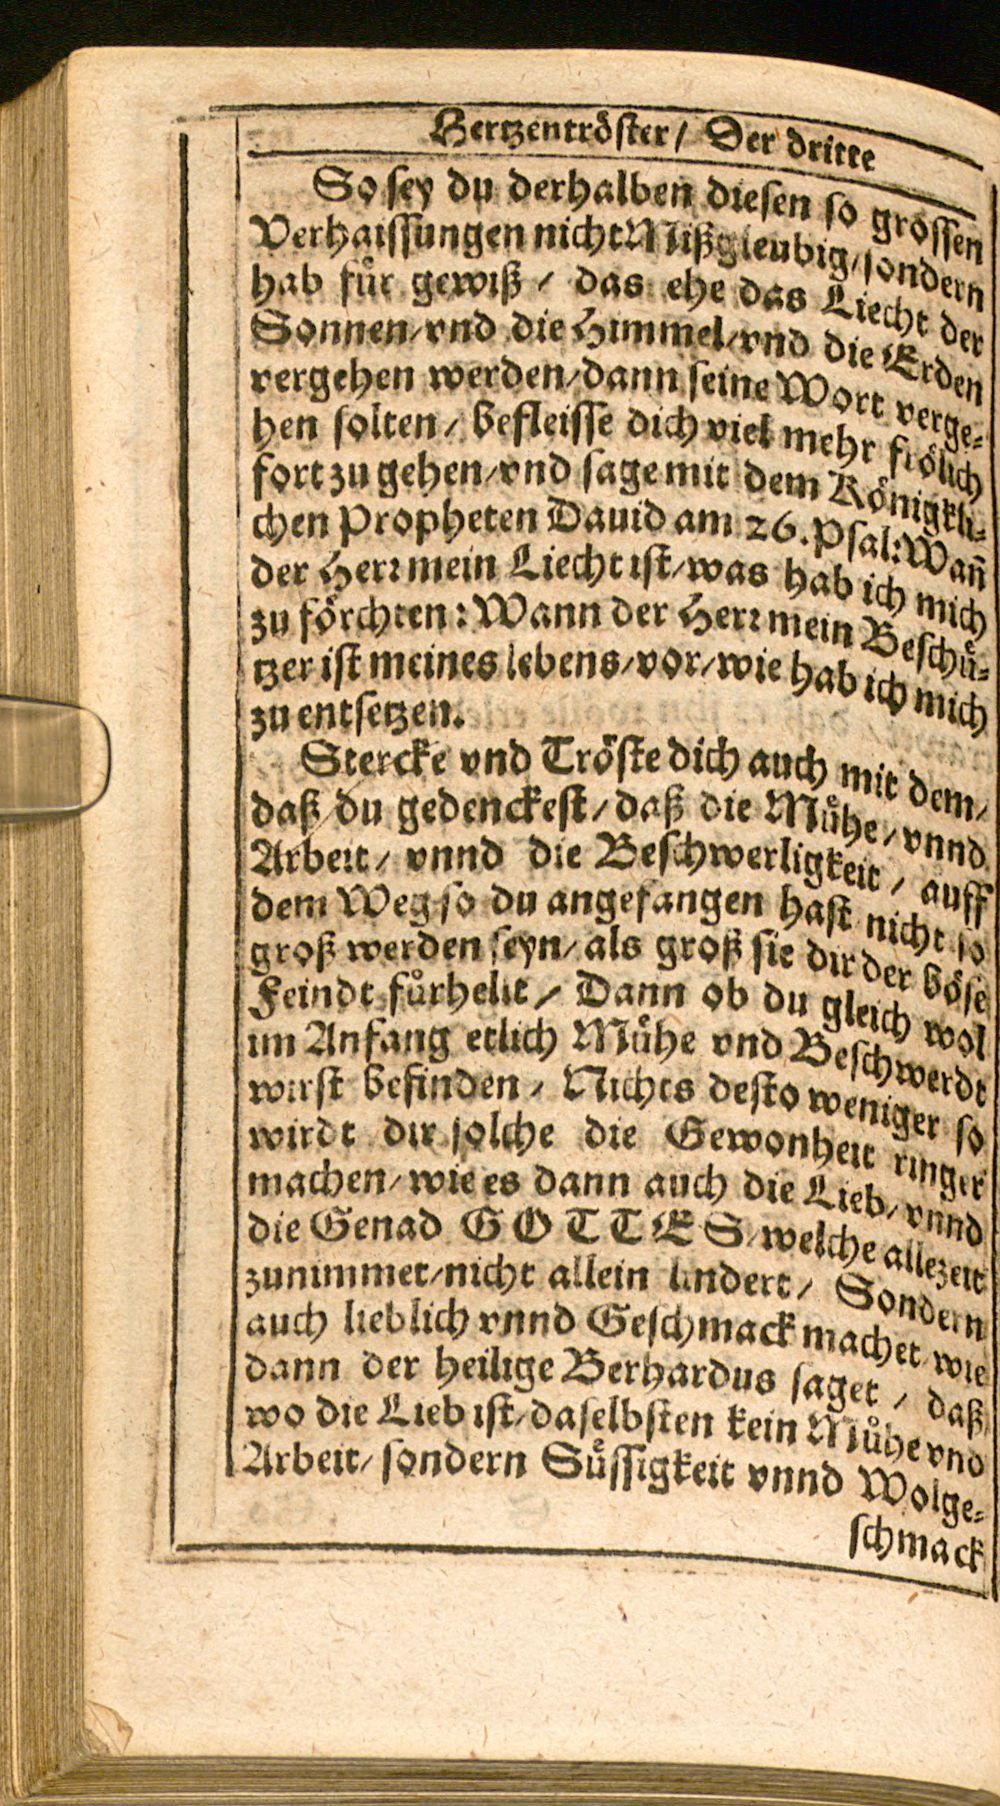 Hertzentröster / Der dritte
So sey du derhalben diesen so grossen
Verhaissungen nicht Mißgleubig / sondern
hab fuͤr gewiß / das ehe das Liecht der
Sonnen / vnd die Himmel / vnd die Erden
vergehen werden / dann seine Wort verge-
hen solten / befleisse dich viel mehr frölich
fort zu gehen / vnd sage mit dem Königkli-
chen Propheten Dauid am 26. Psal: Wañ
der Herr mein Liecht ist / was hab ich mich
zu förchten: Wann der Herr mein Beschuͤ-
tzer ist meines lebens / vor / wie hab ich mich
zu entsetzen.
Stercke vnd Tröste dich auch mit dem /
daß du gedenckest / daß die Muͤhe / vnnd
Arbeit / vnnd die Beschwerligkeit / auff
dem Weg so du angefangen hast nicht so
groß werden seyn / als groß sie dir der böse
Feindt fuͤrhelt / Dann ob du gleich wol
im Anfang etlich Muͤhe vnd Beschwerdt
wirst befinden / Nichts desto weniger so
wirdt dir solche die Gewonheit ringer
machen / wie es dann auch die Lieb / vnnd
die Genad GOTTES / welche allezeit
zunimmet / nicht allein lindert / Sondern
auch lieblich vnnd Geschmack machet wie
dann der heilige Berhardus saget / daß
wo die Lieb ist / daselbsten kein Muͤhe vnd
Arbeit / sondern Suͤssigkeit vnnd Wolge-
schmack